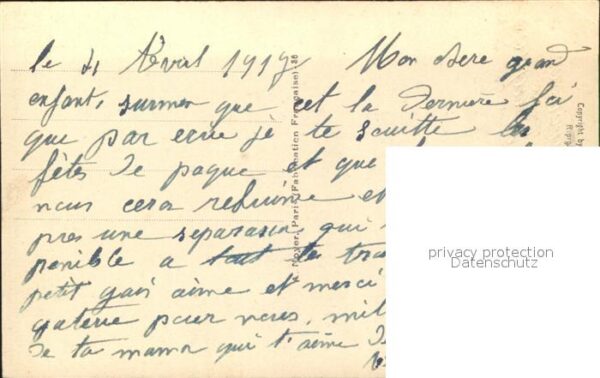 le 21 Avril 1919 Mon chere grand
enfant, surmen que cet la derniere foi
que par ecrie je te souitte les
fêtes de paque et que
nous cera rebuinie et
pres une separasin qui
penible a tout te tra
petit gars aime et merci
gaterie pour nous, mil
de ta maman qui t'aime de
Noyer, Paris (Fabrication Française) 36
Copyright by
privacy protection
Datenschutz